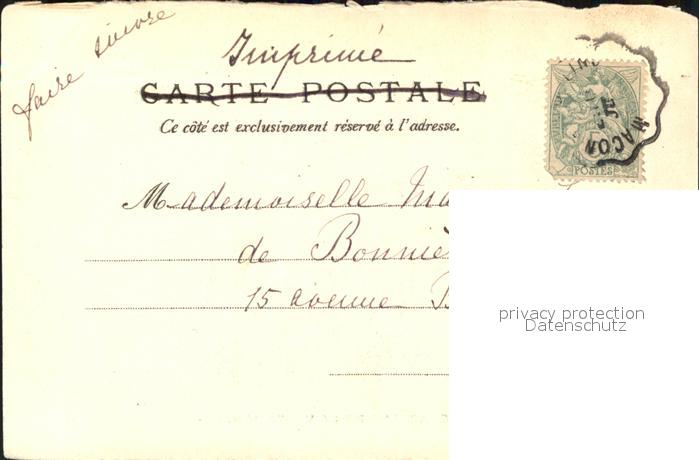 faire suivre
Imprimé
CARTE POSTALE
Ce côté est exclusivement réservé à l'adresse.
MACON
POSTES
Mademoiselle
de Bonniè
15 avenue
privacy protection
Datenschutz